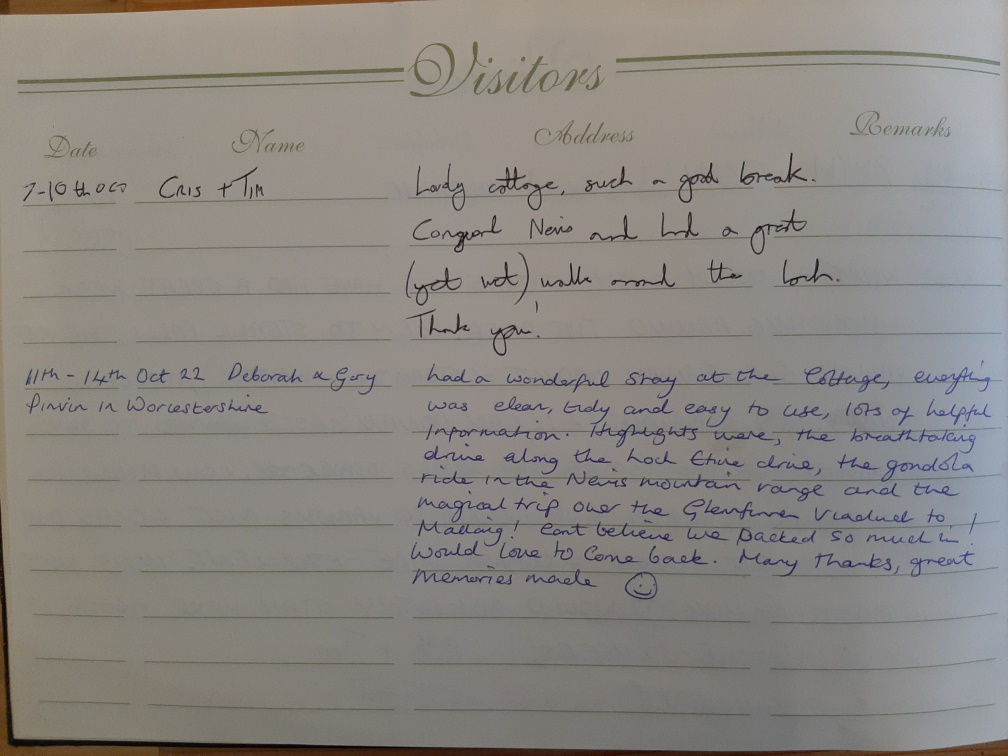 Visitors
Date Name Address Remarks
7-10th Oct Cris + Tim Lovely cottage, such a good break.
Conquered Nevis and had a great
(yet wet) walk around the loch.
Thank you!
11th - 14th Oct 22 Deborah & Gary had a wonderful stay at the Cottage, everything
Pinvin in Worcestershire was clean, tidy and easy to use, lots of helpful
information. Highlights were, the breathtaking
drive along the Loch Etive drive, the gondola
ride in the Nevis mountain range and the
magical trip over the Glenfinnan Viaduct to
Mallaig! Cant believe we packed so much in!
Would love to come back. Many thanks, great
memories made